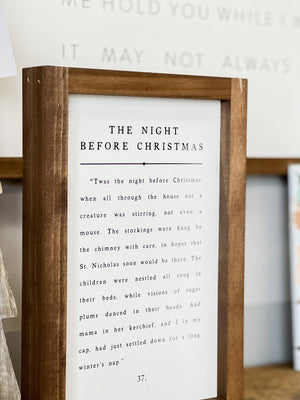 ME HOLD YOU WHILE I
IT MAY NOT ALWAYS
THE NIGHT
BEFORE CHRISTMAS
"Twas the night before Christmas
when all through the house not a
creature was stirring, not even a
mouse. The stockings were hung by
the chimney with care, in hopes that
St. Nicholas soon would be there. The
children were nestled all snug in
their beds, while visions of sugar
plums danced in their heads. And
mama in her kerchief, and I in my
cap, had just settled down for a long
winter's nap."
37.